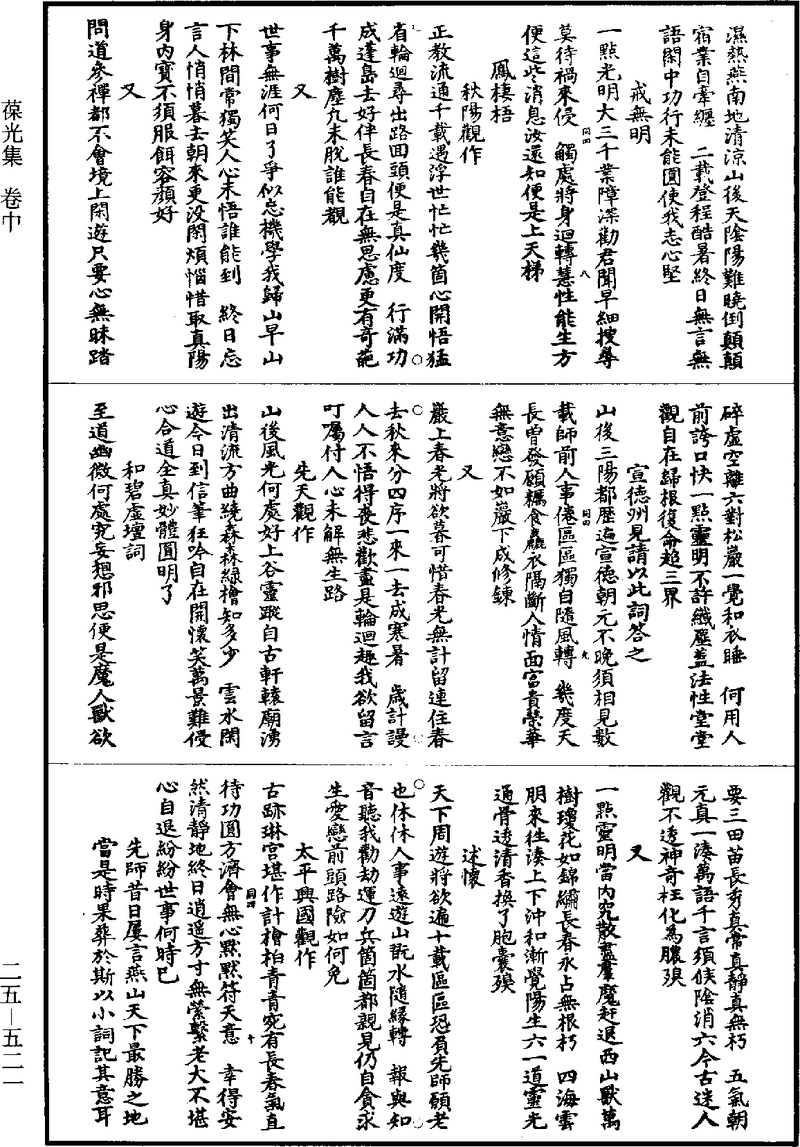 濕熱燕南地清涼山後天陰陽難曉倒顛顛
宿業自牽纏　二載登程酷暑終日無言無
語閙中功行未能圓使我志心堅
戒無明
一點光明大三千業障深勸君聞早細搜尋
莫待禍來侵　觸處將身迴轉慧性能生方
便這些消息汝還知便是上天梯
鳳棲梧
秋陽觀作
正教流通千載遇浮世忙忙幾箇心開悟猛
省輪迴尋出路回頭便是真仙度　行滿功
成蓬島去好伴長春自在無思慮更有奇葩
千萬樹塵凡未脫誰能覩
又
世事無涯何日了爭似忘機學我歸山早山
下林間常獨笑人心未悟誰能到　終日忘
言人悄悄暮去朝來更没閑煩惱惜取真陽
身内寳不須服餌容顏好
又
問道參禪都不會境上閑遊只要心無昧踏
碎虛空離六對松巖一覺和衣睡　何用人
前誇口快一點靈明不許纖塵蓋法性堂堂
觀自在歸根復命超三界
宣德州見請以此詞答之
山後三陽都歷遍宣德朝元不晚須相見數
載師前人事倦區區獨自隨風轉　幾度天
長曽發願糲食麤衣隔斷人情面富貴榮華
無意戀不如巖下成修鍊
又
巖上春光將欲暮可惜春光無計留連住春
去秋來分四序一來一去成寒暑　歲計謾
人人不悟得喪悲歡盡是輪迴趣我欲留言
叮囑付人心未解無生路
先天觀作
山後風光何處好上谷靈蹤自古軒轅廟湧
出清流方曲繞森森綠檜知多少　雲水閑
遊今日到信筆狂吟自在開懷笑萬景難侵
心合道全真妙體圓明了
和碧虛壇詞
至道幽微何處究妄想邪思便是魔人獸欲
要三田苗長秀真常真靜真無朽　五氣朝
元真一湊萬語千言須候陰消六今古迷人
觀不透神奇枉化為膿殠
又
一點靈明當内究散盡羣魔赶退西山獸萬
樹瓊花如錦繡長春永占無根朽　四海雲
朋來往湊上下沖和漸覺陽生六一道靈光
通骨透清香換了胞囊殠
述懷
天下周遊將欲遍十載區區恐負先師願老
也休休人事遠遊山翫水隨緣轉　報與知
音聽我勸劫運刀兵箇箇都親見仍自貪求
生愛戀前頭路險如何免
太平興國觀作
古跡琳宮堪作計檜柏青青宛有長春氣直
待功圓方濟會無心默默符天意　幸得安
然清靜地終日逍遙方寸無縈繫老大不堪
心自退紛紛世事何時已
先師昔日屢言燕山天下最勝之地
當是時果葬於斯以小詞記其意耳
葆光集　卷中
二五—五二一